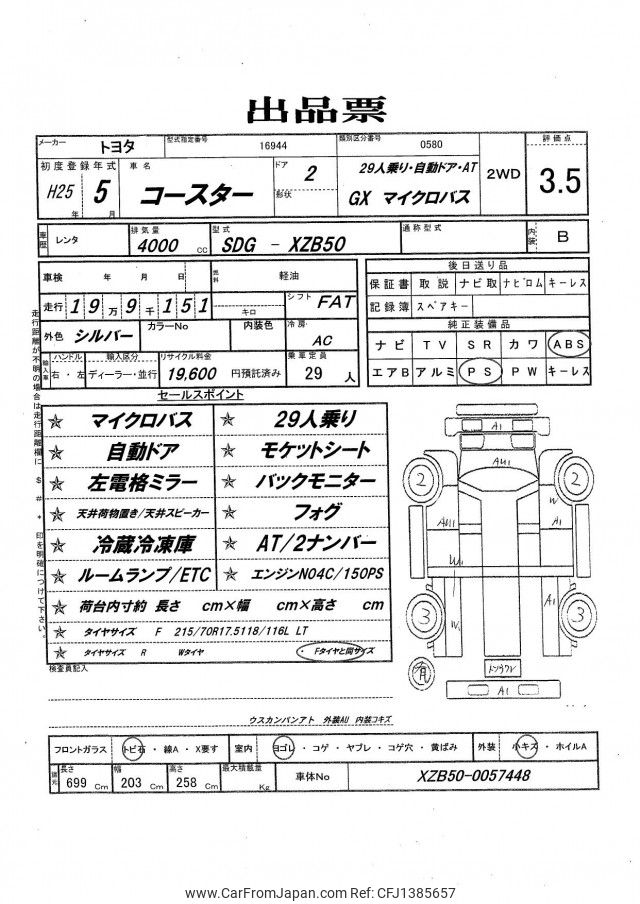 出品票
メーカー トヨタ 型式指定番号 16944 類別区分番号 0580 2WD 評価点 3.5
初度登録年式 H25 年 5 月 車名 コースター ドア 2 形状 29人乗り・自動ドア・AT
GX マイクロバス
車歴 レンタ 排気量 4000 CC 型式 SDG - XZB50 通称型式 内装 B
車検 年 月 日 燃料 軽油
走行 19万9千151 キロ シフト FAT
外色 シルバー カラーNo 内装色 冷房 AC
輸入車 ハンドル 右・左 輸入区分 ディーラー・並行 リサイクル料金 19,600 円預託済み 乗車定員 29 人
後日送り品
保証書 取説 ナビ取 ナビロム キーレス
記録簿 スペアキー
純正装備品
ナビ TV SR カワ ABS
エアB アルミ PS PW キーレス
走行距離が不明の場合は走行距離欄に $ # * 印を明確につけて下さい。
セールスポイント
☆ マイクロバス ☆ 29人乗り
☆ 自動ドア ☆ モケットシート
☆ 左電格ミラー ☆ バックモニター
☆ 天井荷物置き/天井スピーカー ☆ フォグ
☆ 冷蔵冷凍庫 ☆ AT/2ナンバー
☆ ルームランプ/ETC ☆ エンジンN04C/150PS
☆ 荷台内寸約 長さ cm×幅 cm×高さ cm
☆ タイヤサイズ F 215/70R17.5118/116L LT
☆ タイヤサイズ R Wタイヤ ・Fタイヤと同サイズ
検査員記入
A1
AU1
2
2
W
AU1
A1
W1
3
3
W
A1
有
トソウワレ
A1
ウスカンバンアト 外装AU 内装コキズ
フロントガラス トビ石・線A・X要す 室内 ヨゴレ・コゲ・ヤブレ・コゲ穴・黄ばみ 外装 小キズ・ホイルA
諸元 長さ 699 Cm 幅 203 Cm 高さ 258 Cm 最大積載量 Kg 車体No XZB50-0057448
www.CarFromJapan.com Ref: CFJ1385657